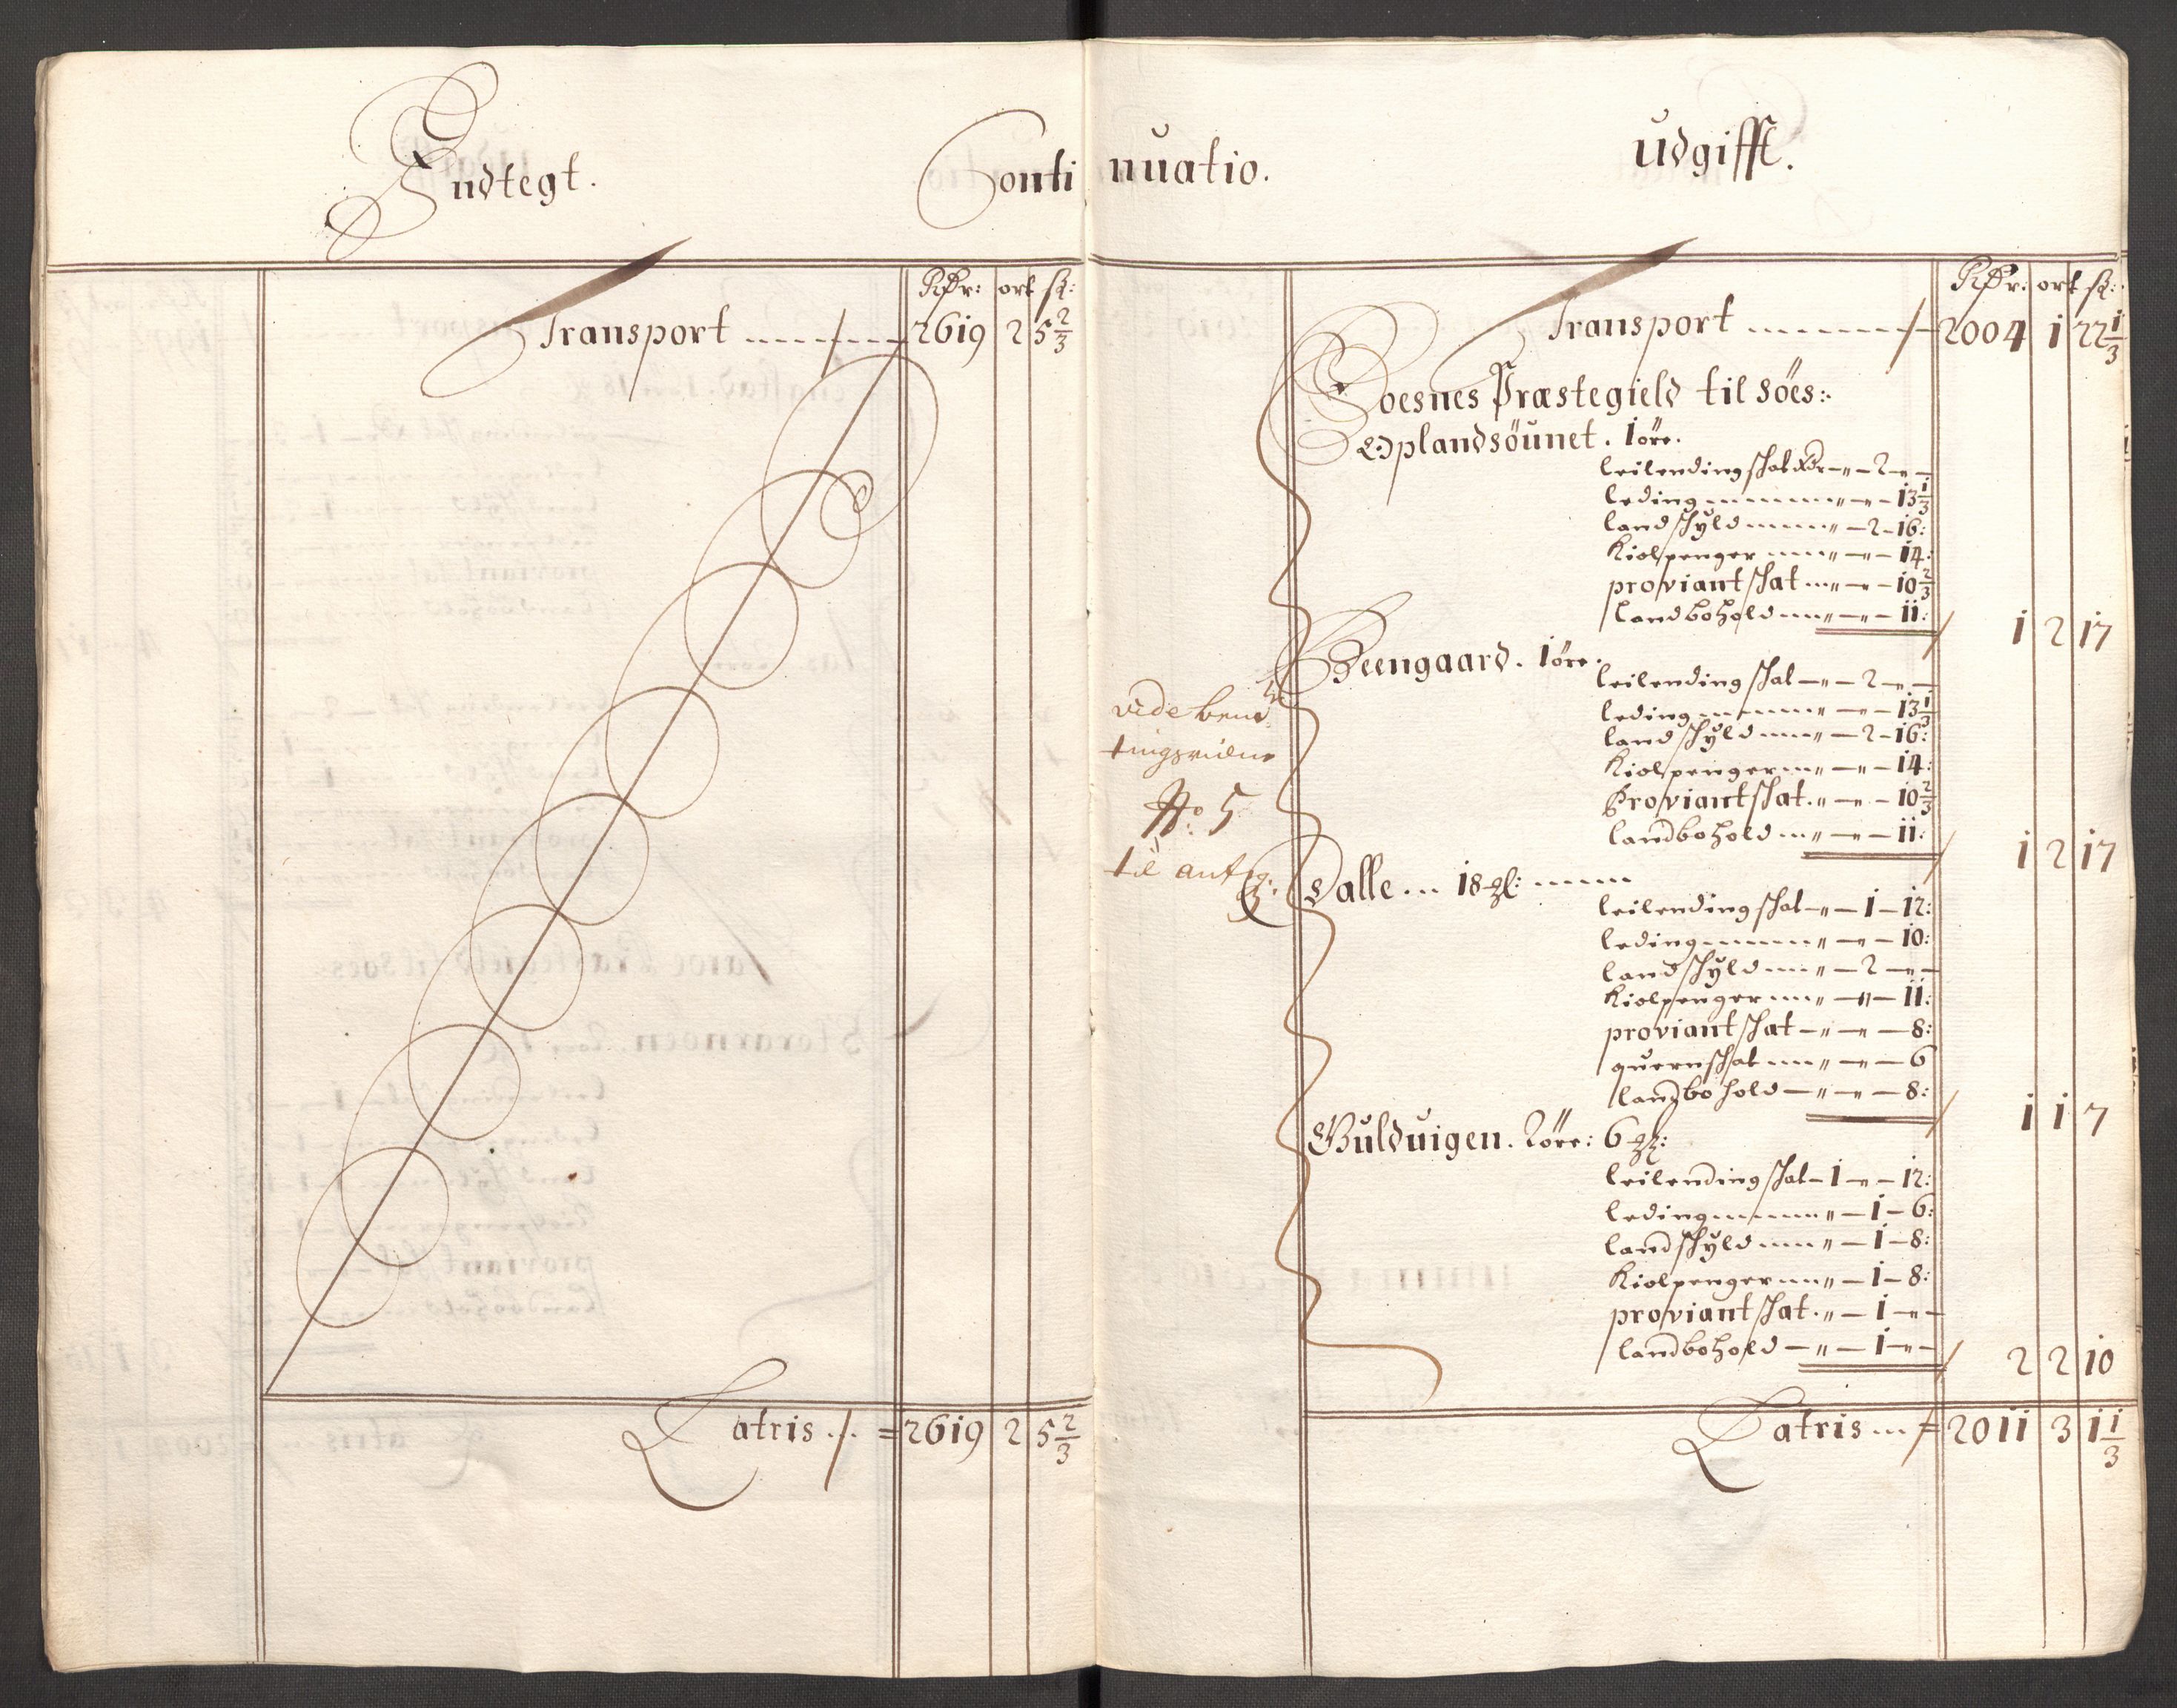 Indtegt.
Conti nuatio.
Udgifft.
Rdr: ort sk:
Transport 2619 2 5 2/3
Latris 2619 2 5 2/3
Rdr: ort sk:
Transport 2004 1 22 1/3
Foesnes Præstegield til Søes:
Oplandsöunet. 1 öre.
leilendingschat Rdr - " - 2 - " -
leding - " - " - 13 1/3
landschyld - " - 2 - 16:
Kiolpenger - " - " - 14:
proviantschat - " - " - 10 2/3
landbohold - " - " - 11:
1 2 17
Beengaard. 1 öre.
leilendingschat - " - 2 - " -
leding - " - " - 13 1/3
landschyld - " - 2 - 16:
Kiolpenger - " - " - 14:
Proviantschat - " - " - 10 2/3
landbohold - " - " - 11:
1 2 17
vide
tingsvidne
No 5
til
Dalle 18 gl:
leilendingschat - " - 1 - 12:
leding - " - " - 10:
landschyld - " - 2 - " -
Kiolpenger - " - " - 11:
proviantschat - " - " - 8:
quernschat - " - " - 6
landbohold - " - " - 8:
1 1 7
Gulduigen. 2 öre: 6 gl:
leilendingschat - 1 - " - 12:
leding - " - 1 - 6:
landschyld - " - 1 - 8:
Kiolpenger - " - 1 - 8:
proviantschat - " - 1 - " -
landbohold - " - 1 - " -
2 2 10
Latris 2011 3 1 1/3